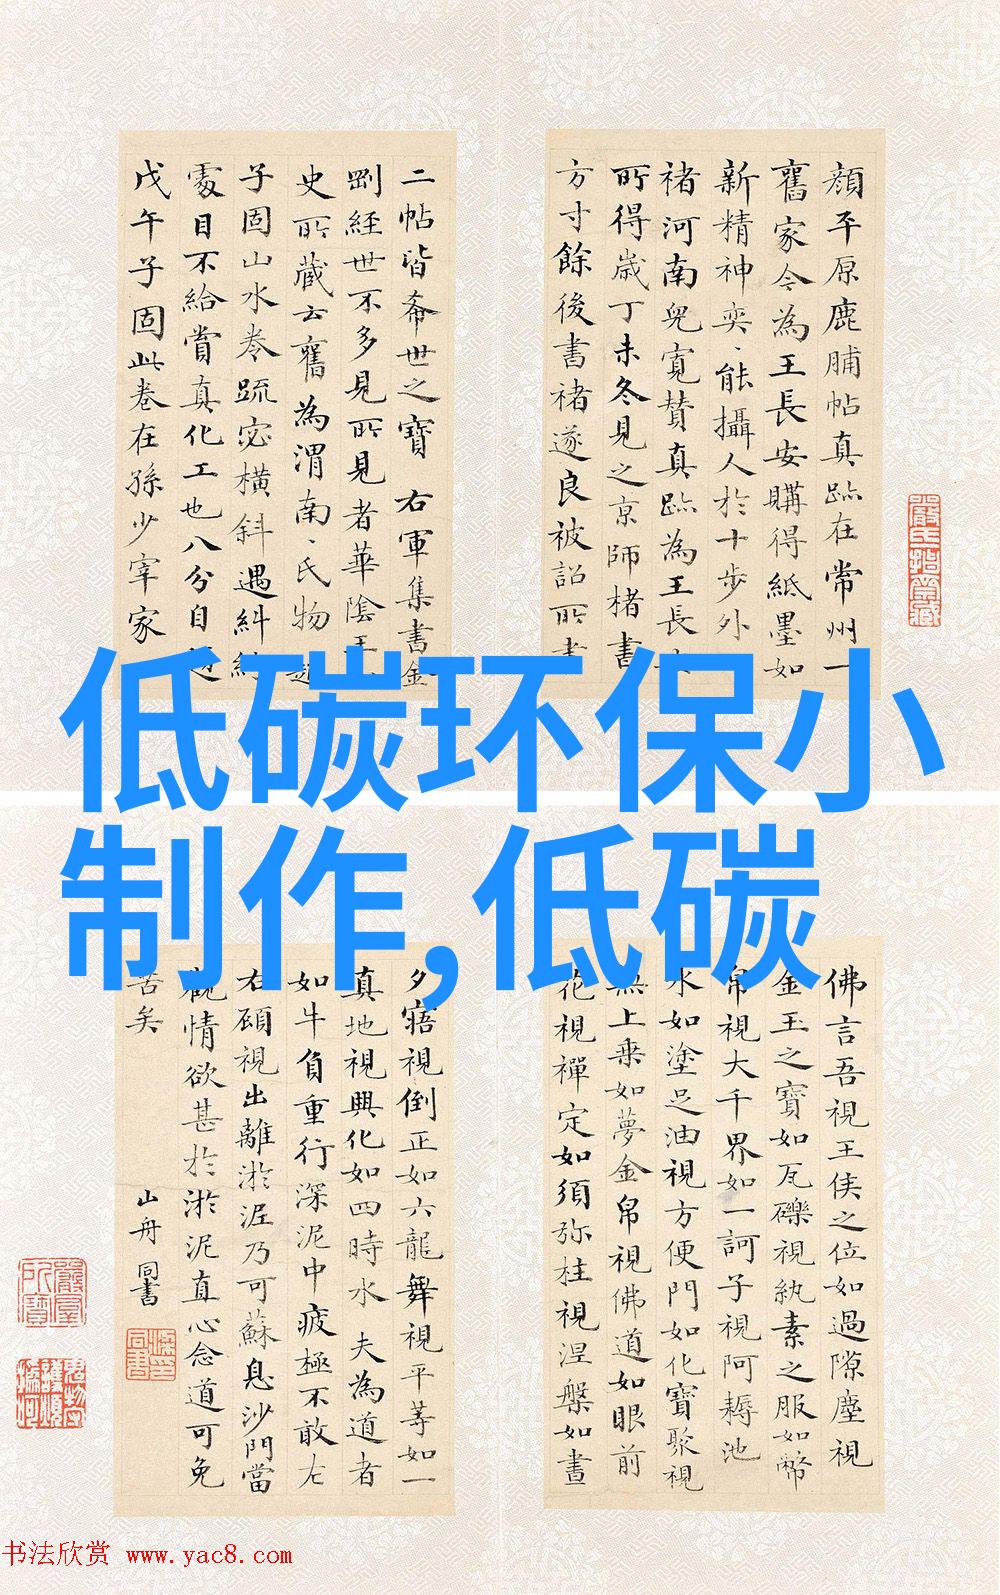 顔平原鹿脯帖真跡在常州一
舊家今為王長安購得紙墨如
新精神奕〻能攝人於十步外
褚河南兒寛賛真跡為王長
所得歳丁未冬見之京師楮書
方寸餘後書褚遂良被詔所書
二帖皆希世之寶 右軍集書金
剛經世不多見所見者華陰王
史所藏云舊為渭南〻氏物
子固山水卷疏宓横斜遇糾
處目不給賞真化工也八分自
戊午子固此卷在孫少宰家
低碳环保小
制作,低碳
佛言吾視王侯之位如過隙塵視
金玉之寶如瓦礫視紈素之服如幣
帛視大千界如一訶子視阿耨池
水如塗足油視方便門如化寶聚視
無上乗如夢金帛視佛道如眼前
花視禪定如須弥柱視涅槃如晝
夕寤視倒正如六龍舞視平等如一
真地視興化如四時水 夫為道者
如牛負重行深泥中疲極不敢左
右顧視出離淤泥乃可蘇息沙門當
觀情欲甚於淤泥直心念道可免
苦矣 山舟同書
书法欣赏 www.yac8.com